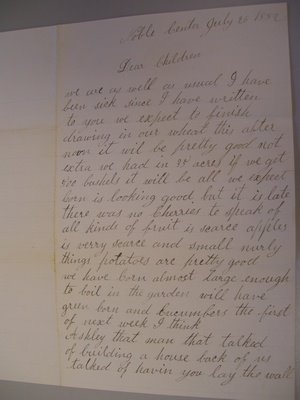 Noble Center July 26 1882
Dear Children
we are as well as usual I have
been sick since I have written
to you we expect to finish
drawing in our wheat this after
noon it wil be pretty good not
extra we had in 34 acres if we get
500 bushels it will be all we expect
corn is looking good but it is late
there was no Charries to speak of
all kinds of fruit is scarce apples
is verry scarce and small nurly
things potatoes are pretty good
we have corn almost large enough
to boil in the garden will have
green corn and cucumbers the first
of next week I think
Ashley that man that talked
of building a house back of us
talked of havin you lay the wall